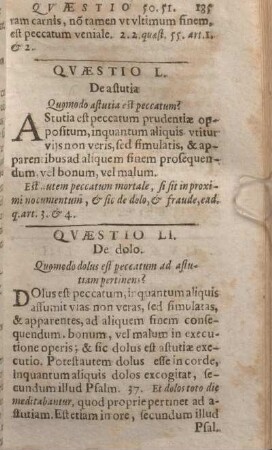 QVÆSTIO 50.51. 135
ram carnis, nō tamen vt vltimum finem,
est peccatum veniale. 2.2. quæst. 55. art. 1.
& 2.
QVÆSTIO L.
De astutia
Quomodo astutia est peccatum?
AStutia est peccatum prudentiæ op-
positum, inquantum aliquis vtitur
viis non veris, sed simulatis, &
apparentibus ad aliquem finem prosequen-
dum, vel bonum, vel malum.
Est autem peccatum mortale, si sit in proxi-
mi nocumentum, & sic de dolo, & fraude, ead.
q. art. 3. & 4.
QVÆSTIO LI.
De dolo.
Quomodo dolus est peccatum ad astu-
tiam pertinens?
DOlus est peccatum, inquantum aliquis
assumit vias non veras, sed simulatas,
& apparentes, ad aliquem finem conse-
quendum, bonum, vel malum in execu-
tione operis; & sic dolus est astutiæ exe-
cutio. Potest autem dolus esse in corde,
inquantum aliquis dolos excogitat, se-
cundum illud Psalm. 37. Et dolos toto die
meditabantur, quod proprie pertinet ad a-
stutiam. Est etiam in ore, secundum illud
Psal.